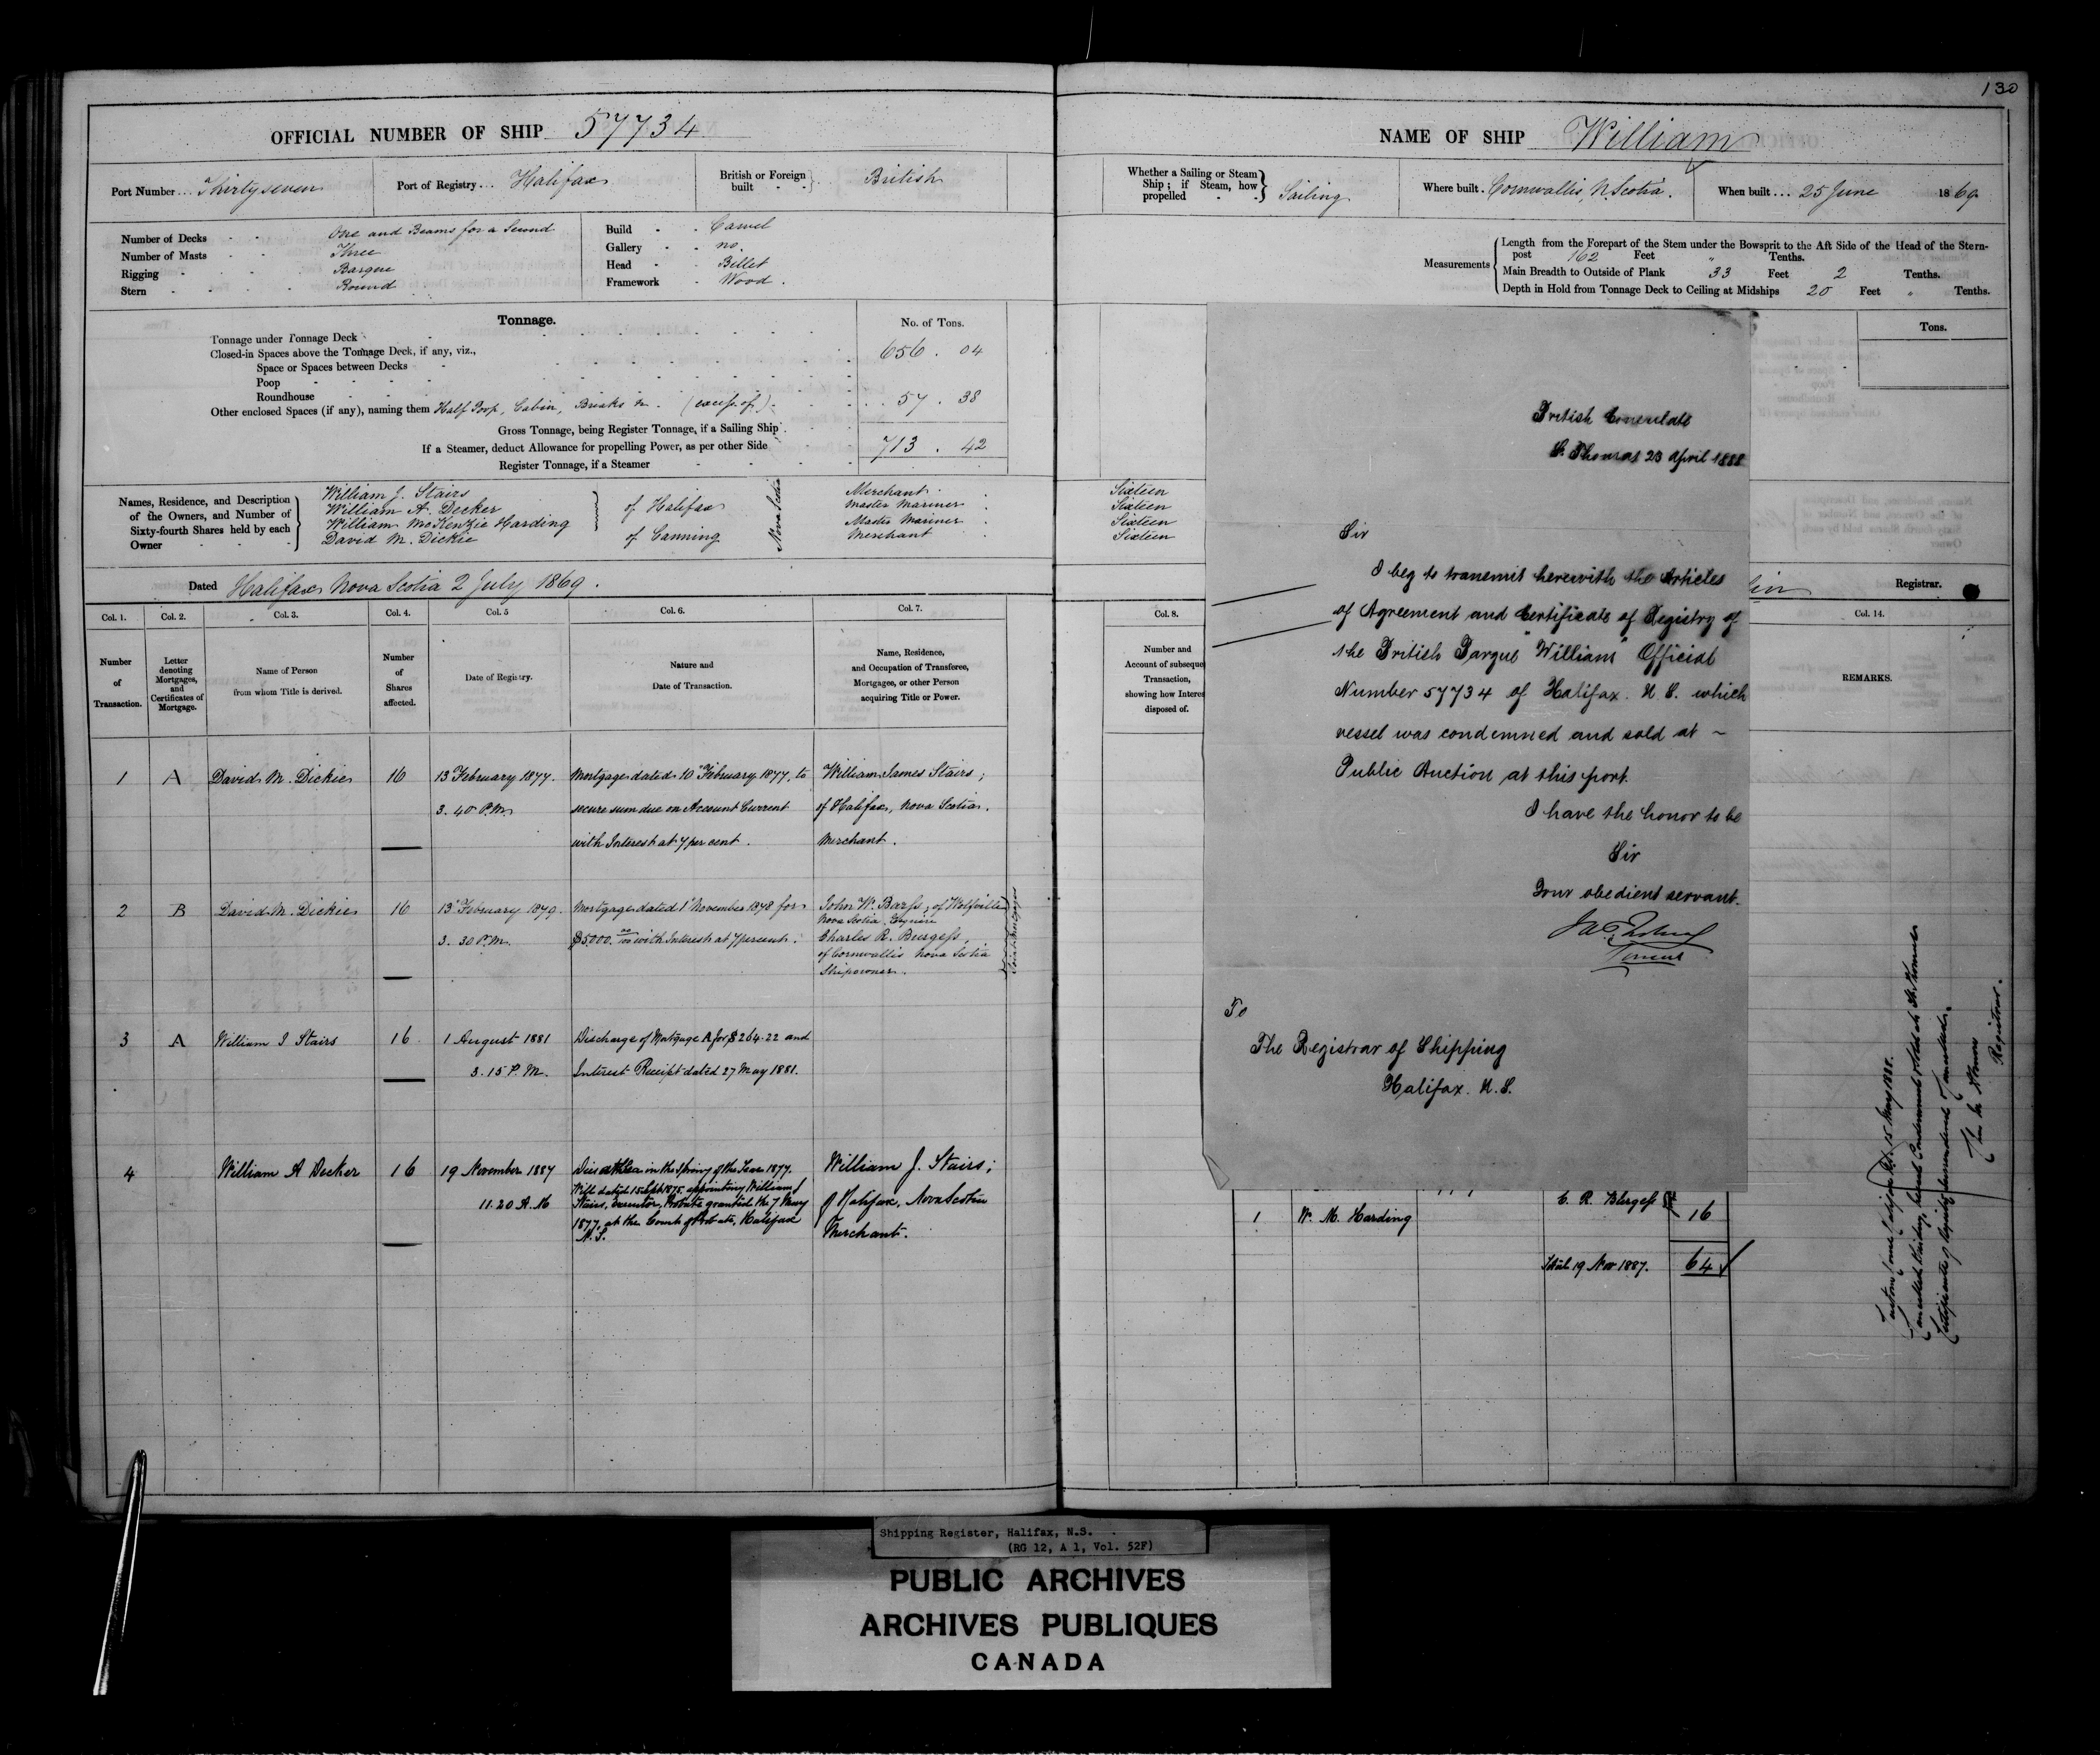 130
OFFICIAL NUMBER OF SHIP 57734
Port Number... Thirtyseven
Port of Registry... Halifax
British or Foreign built British
Number of Decks One and Beams for a Second
Number of Masts Three
Rigging Barque
Stern Round
Build Carvel
Gallery no.
Head Billet
Framework Wood.
Tonnage.
No. of Tons.
Tonnage under Tonnage Deck 656.04
Closed-in Spaces above the Tonnage Deck, if any, viz.,
Space or Spaces between Decks
Poop
Roundhouse
Other enclosed Spaces (if any), naming them Half Poop, Cabin, Breaks &c. (excess of) 57.38
Gross Tonnage, being Register Tonnage, if a Sailing Ship
713.42
If a Steamer, deduct Allowance for propelling Power, as per other Side
Register Tonnage, if a Steamer
Names, Residence, and Description of the Owners, and Number of Sixty-fourth Shares held by each Owner
William J. Stairs
William A. Decker
William McKenzie Harding
David M. Dickie
of Halifax
of Canning
Nova Scotia
Merchant
Master Mariner
Master Mariner
Merchant
Dated Halifax Nova Scotia 2 July 1869.
Col. 1. Col. 2. Col. 3. Col. 4. Col. 5 Col. 6. Col. 7.
Number of Transaction.
Letter denoting Mortgages, and Certificates of Mortgage.
Name of Person from whom Title is derived.
Number of Shares affected.
Date of Registry.
Nature and Date of Transaction.
Name, Residence, and Occupation of Transferee, Mortgagee, or other Person acquiring Title or Power.
1 A David M. Dickie 16 13 February 1877. Mortgage dated 10 February 1877, to William James Stairs;
3.40 P.M. secure sum due on Account Current of Halifax, Nova Scotia.
with Interest at 7 per cent. Merchant.
2 B David M. Dickie 16 13 February 1879. Mortgage dated 1 November 1878 for John W. Barss, of Wolfville
Nova Scotia, Esquire
3.30 P.M. $5000.00 with Interest at 7 per cent. Charles R. Burgess,
of Cornwallis Nova Scotia
Shipowner.
Joint Mortgagees
3 A William J Stairs 16 1 August 1881 Discharge of Mortgage A for $264.22 and
3.15 P.M. Interest Receipt dated 27 May 1881.
4 William A Decker 16 19 November 1887 Died at Sea in the Spring of the Year 1877. William J. Stairs;
Will dated 15 Sept 1875. appointing William J
11.20 A.M Stairs, Executor, Probate granted the 7 May of Halifax, Nova Scotia
1877, at the Court of Probate, Halifax
N.S. Merchant.
NAME OF SHIP William
Whether a Sailing or Steam Ship; if Steam, how propelled Sailing
Where built. Cornwallis, N. Scotia.
When built.... 25 June 1869.
Measurements
Length from the Forepart of the Stem under the Bowsprit to the Aft Side of the Head of the Stern-
post 162 Feet " Tenths.
Main Breadth to Outside of Plank 33 Feet 2 Tenths.
Depth in Hold from Tonnage Deck to Ceiling at Midships 20 Feet " Tenths.
Tons.
Sixteen
Sixteen
Sixteen
Sixteen
Registrar.
Col. 8.
Col. 14.
Number and
Account of subseque
Transaction,
showing how Interes
disposed of.
REMARKS.
British Consulate
St. Thomas 23 April 1888
Sir
I beg to transmit herewith the Articles
of Agreement and Certificate of Registry of
the British Barque "William" Official
Number 57734 of Halifax. N.S. which
vessel was condemned and sold at ~
Public Auction at this port.
I have the honor to be
Sir
Your obedient servant.
To
The Registrar of Shipping
Halifax. N.S.
1 W. M. Harding C. R. Burgess 16
19 Nov 1887. 64
15 May 1888.
Registrar.
Shipping Register, Halifax, N.S.
(RG 12, A 1, Vol. 52F)
PUBLIC ARCHIVES
ARCHIVES PUBLIQUES
CANADA